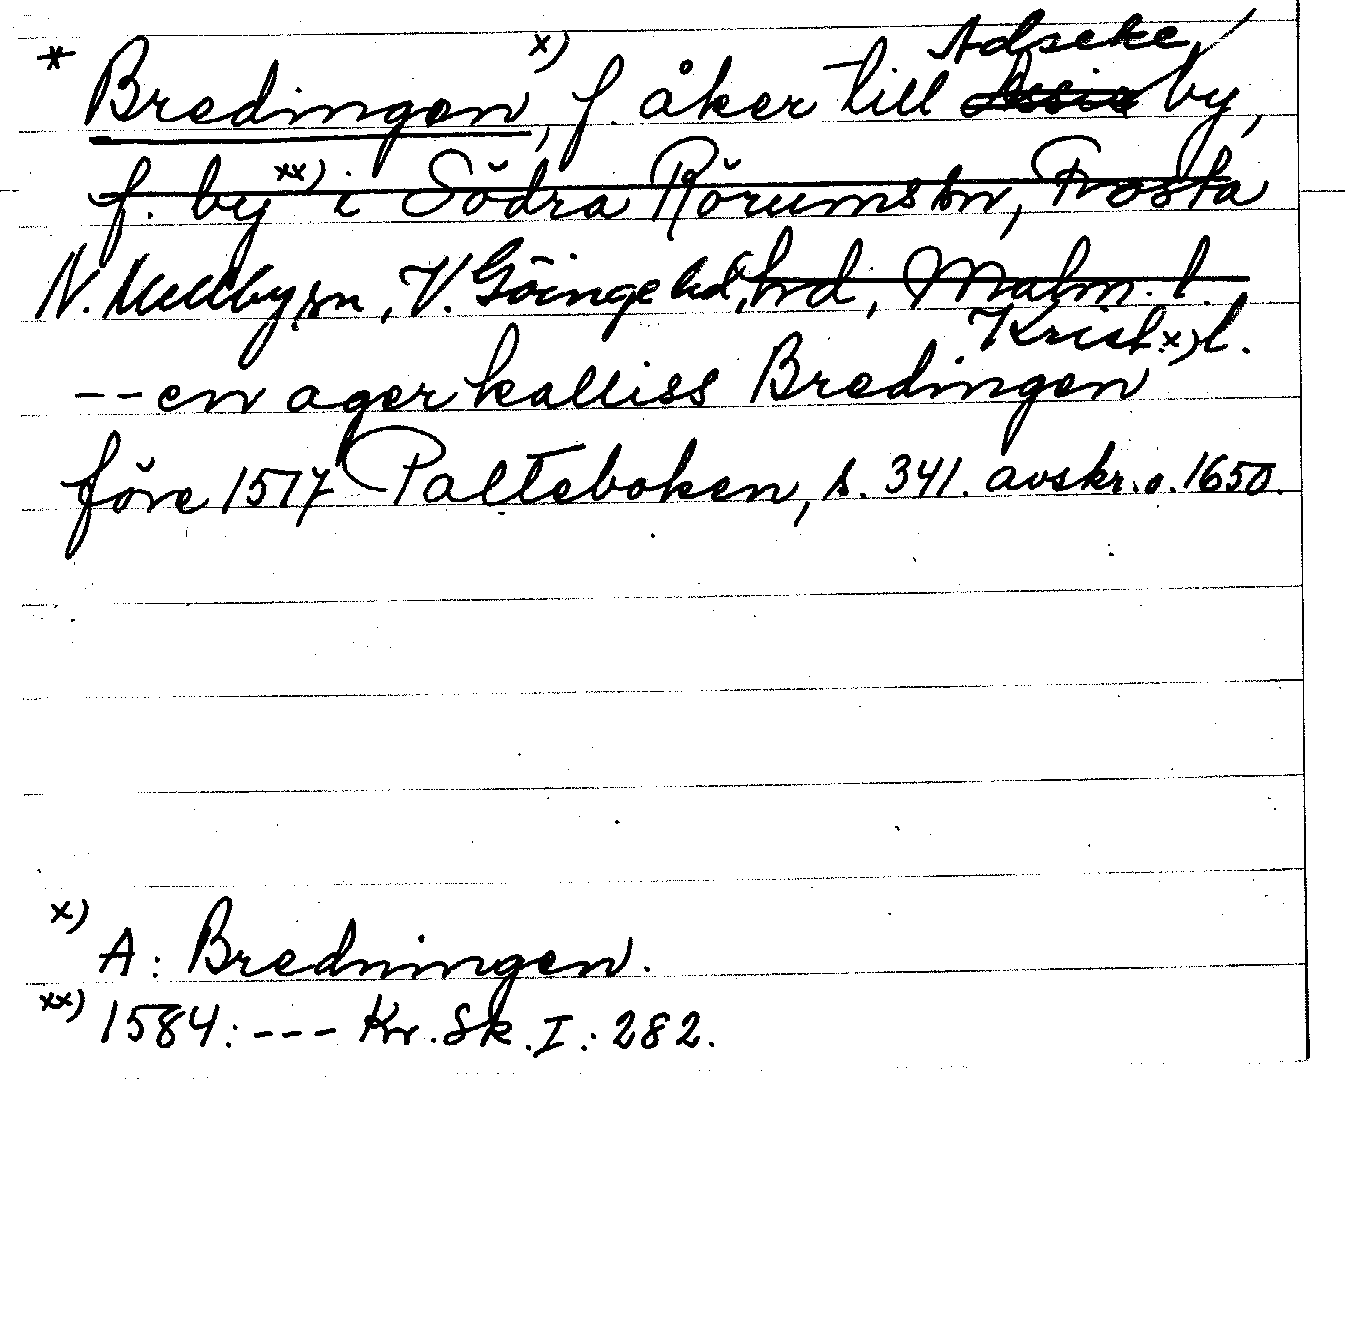 Adseke
* Bredingen x), f. åker till Åssie by,
f. by xx) i Södra Rörums sn, Frosta
N. Mellby sn, V. Göinge hd, hrd, Malm. l.
Krist. l.
-- en ager kalliss Bredingen x)
före 1517 Palteboken, s. 341. avskr. o. 1650.
x) A: Bredningen.
xx) 1584: --- Kr. Sk. I: 282.